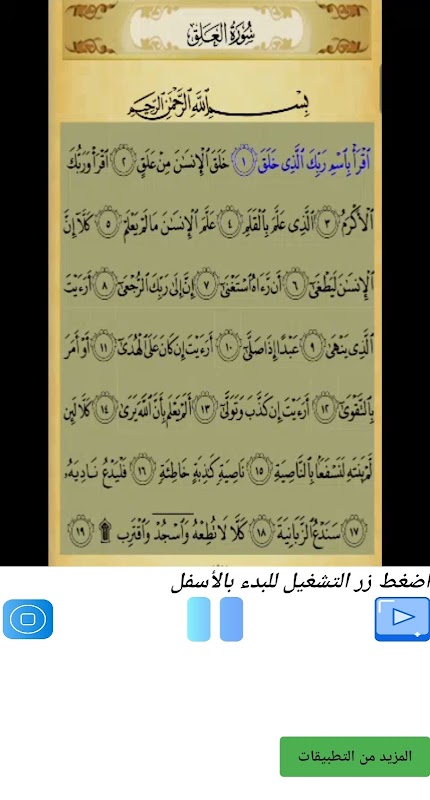 سُورَةُ الْعَلَقِ
بِسْمِ اللَّهِ الرَّحْمَٰنِ الرَّحِيمِ
ٱقْرَأْ بِٱسْمِ رَبِّكَ ٱلَّذِى خَلَقَ ١ خَلَقَ ٱلْإِنسَٰنَ مِنْ عَلَقٍ ٢ ٱقْرَأْ وَرَبُّكَ
ٱلْأَكْرَمُ ٣ ٱلَّذِى عَلَّمَ بِٱلْقَلَمِ ٤ عَلَّمَ ٱلْإِنسَٰنَ مَا لَمْ يَعْلَمْ ٥ كَلَّآ إِنَّ
ٱلْإِنسَٰنَ لَيَطْغَىٰٓ ٦ أَن رَّءَاهُ ٱسْتَغْنَىٰٓ ٧ إِنَّ إِلَىٰ رَبِّكَ ٱلرُّجْعَىٰٓ ٨ أَرَءَيْتَ
ٱلَّذِى يَنْهَىٰ ٩ عَبْدًا إِذَا صَلَّىٰٓ ١٠ أَرَءَيْتَ إِن كَانَ عَلَى ٱلْهُدَىٰٓ ١١ أَوْ أَمَرَ
بِٱلتَّقْوَىٰٓ ١٢ أَرَءَيْتَ إِن كَذَّبَ وَتَوَلَّىٰٓ ١٣ أَلَمْ يَعْلَم بِأَنَّ ٱللَّهَ يَرَىٰ ١٤ كَلَّا لَئِن
لَّمْ يَنتَهِ لَنَسْفَعًۢا بِٱلنَّاصِيَةِ ١٥ نَاصِيَةٍ كَٰذِبَةٍ خَاطِئَةٍ ١٦ فَلْيَدْعُ نَادِيَهُۥ
١٧ سَنَدْعُ ٱلزَّبَانِيَةَ ١٨ كَلَّا لَا تُطِعْهُ وَٱسْجُدْ وَٱقْتَرِب ۩ ١٩
اضغط زر التشغيل للبدء بالأسفل
المزيد من التطبيقات